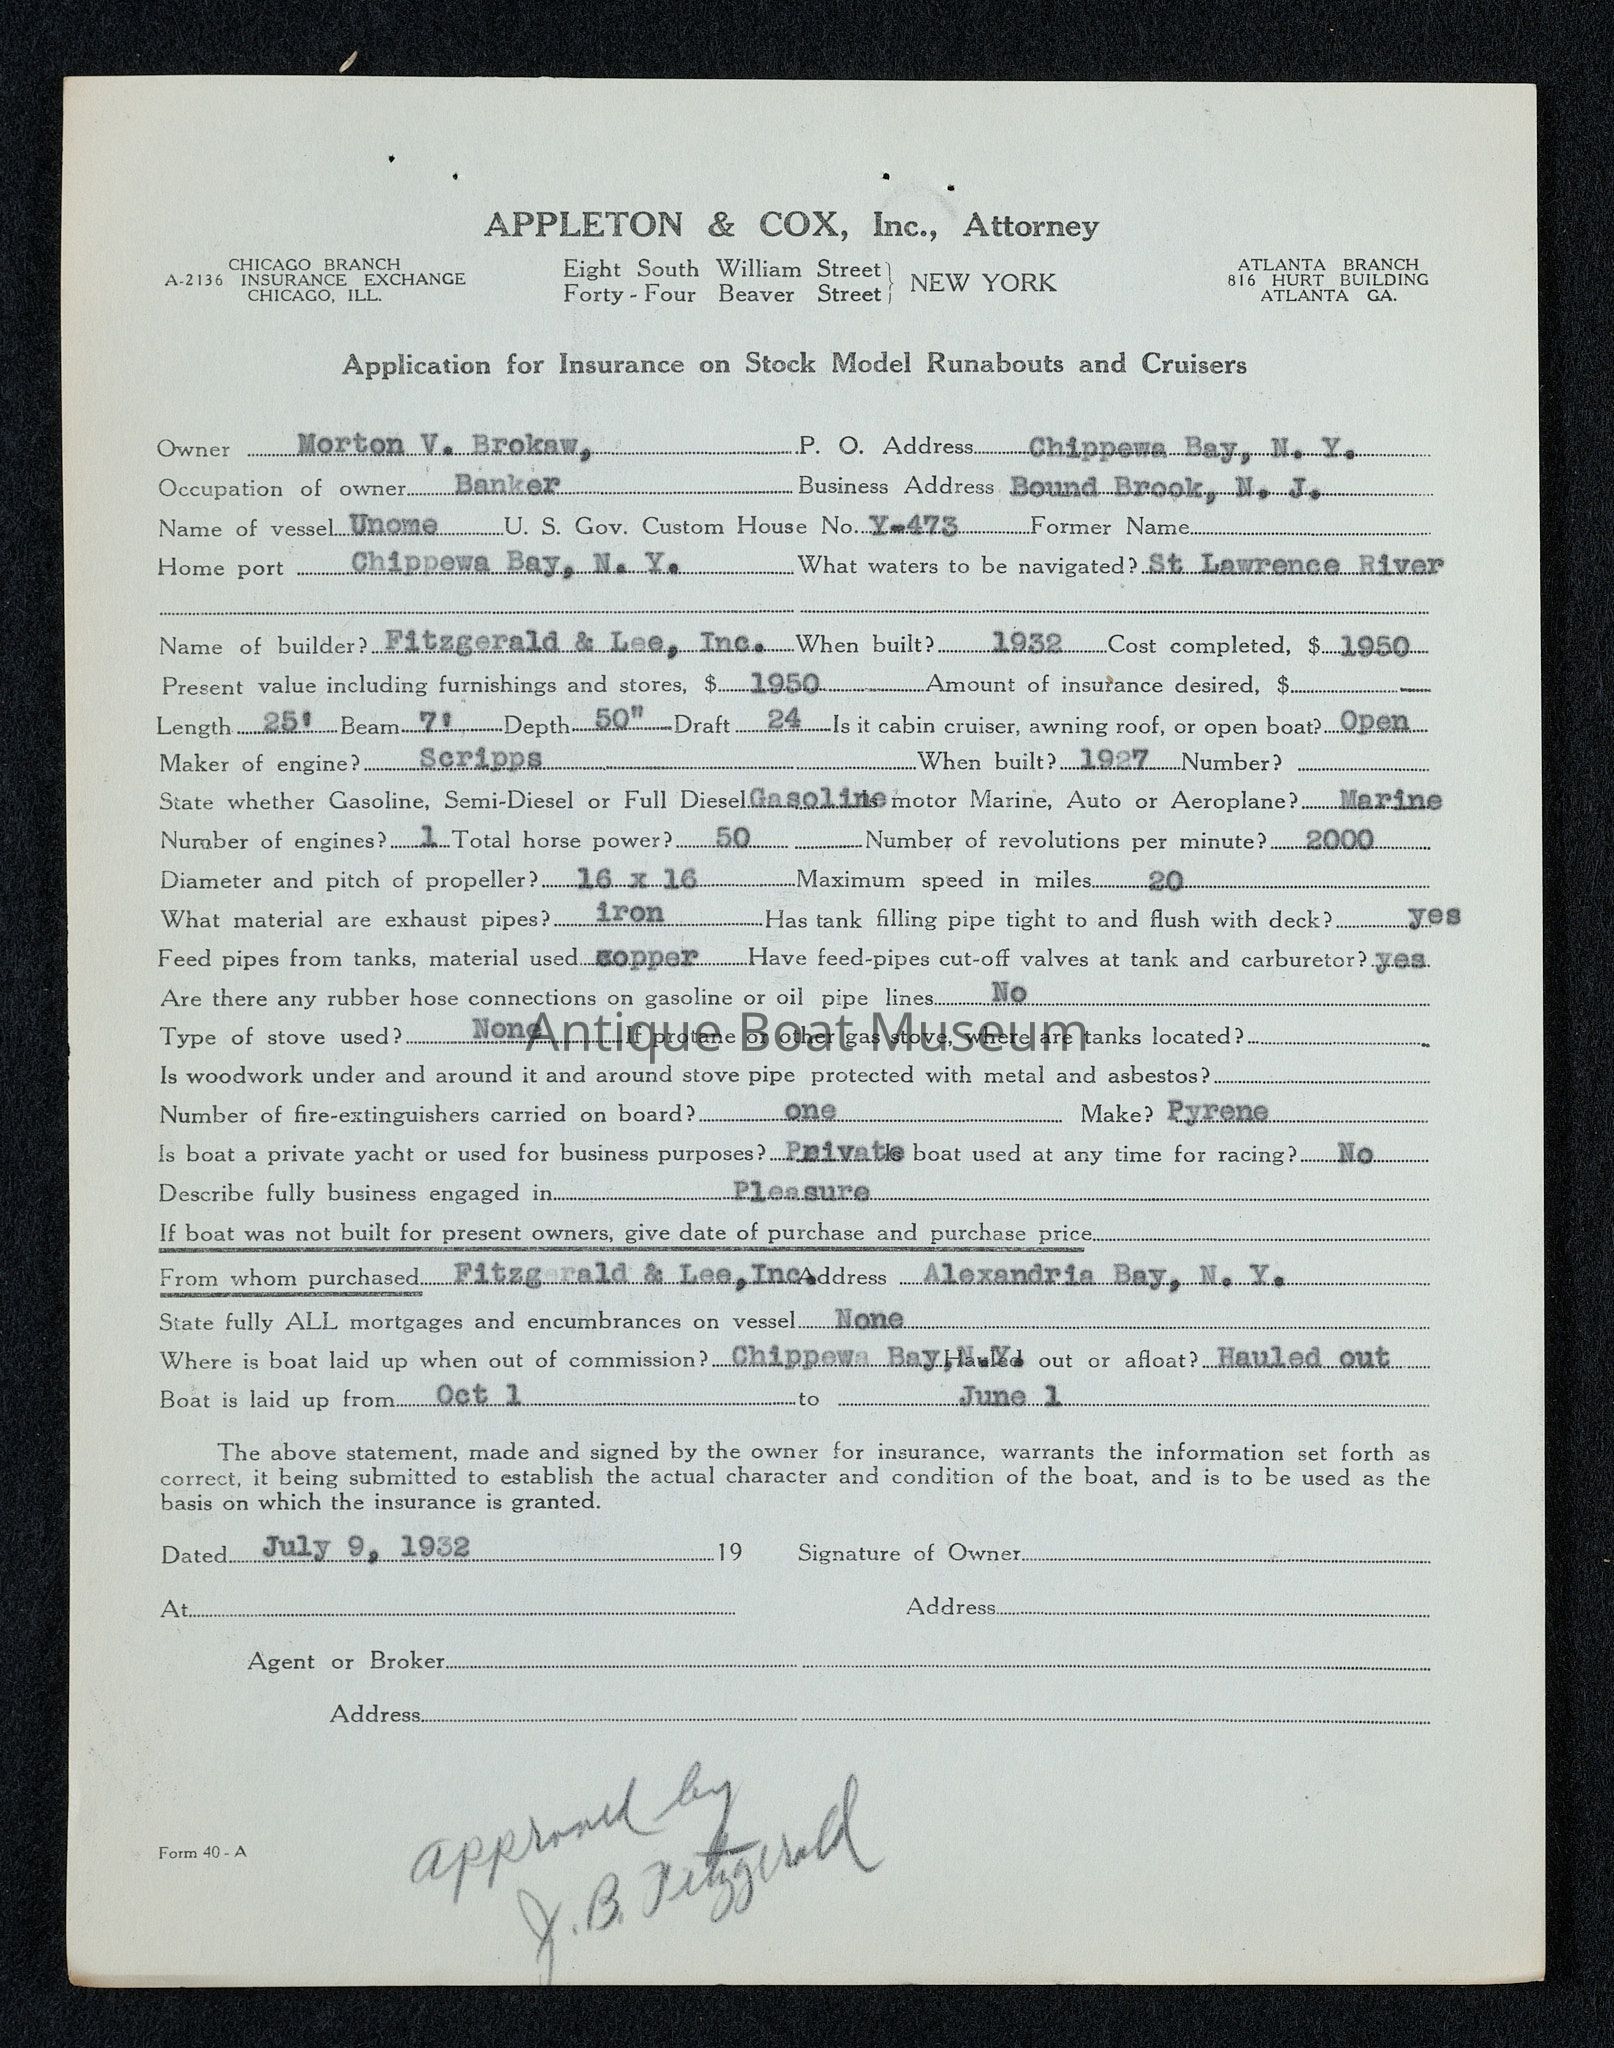 APPLETON & COX, Inc., Attorney
CHICAGO BRANCH
A-2136 INSURANCE EXCHANGE
CHICAGO, ILL.
Eight South William Street
Forty-Four Beaver Street
NEW YORK
ATLANTA BRANCH
816 HURT BUILDING
ATLANTA GA.
Application for Insurance on Stock Model Runabouts and Cruisers
Owner Morton V. Brokaw, P. O. Address Chippewa Bay, N. Y.
Occupation of owner Banker Business Address Bound Brook, N. J.
Name of vessel Unome U. S. Gov. Custom House No. Y-473 Former Name
Home port Chippewa Bay, N. Y. What waters to be navigated? St Lawrence River
Name of builder? Fitzgerald & Lee, Inc. When built? 1932 Cost completed, $ 1950
Present value including furnishings and stores, $ 1950 Amount of insurance desired, $
Length 25' Beam 7' Depth 50" Draft 24 Is it cabin cruiser, awning roof, or open boat? Open
Maker of engine? Scripps When built? 1927 Number?
State whether Gasoline, Semi-Diesel or Full Diesel Gasoline Is motor Marine, Auto or Aeroplane? Marine
Number of engines? 1 Total horse power? 50 Number of revolutions per minute? 2000
Diameter and pitch of propeller? 16 x 16 Maximum speed in miles 20
What material are exhaust pipes? iron Has tank filling pipe tight to and flush with deck? yes
Feed pipes from tanks, material used copper Have feed-pipes cut-off valves at tank and carburetor? yes
Are there any rubber hose connections on gasoline or oil pipe lines No
Type of stove used? None If protane or other gas stove, where are tanks located?
Antique Boat Museum
Is woodwork under and around it and around stove pipe protected with metal and asbestos?
Number of fire-extinguishers carried on board? one Make? Pyrene
Is boat a private yacht or used for business purposes? Private Is boat used at any time for racing? No
Describe fully business engaged in Pleasure
If boat was not built for present owners, give date of purchase and purchase price
From whom purchased Fitzgerald & Lee, Inc. Address Alexandria Bay, N. Y.
State fully ALL mortgages and encumbrances on vessel None
Where is boat laid up when out of commission? Chippewa Bay, N.Y. Hauled out or afloat? Hauled out
Boat is laid up from Oct 1 to June 1
The above statement, made and signed by the owner for insurance, warrants the information set forth as
correct, it being submitted to establish the actual character and condition of the boat, and is to be used as the
basis on which the insurance is granted.
Dated July 9, 1932 19 Signature of Owner
At Address
Agent or Broker
Address
approved by
J. B. Fitzgerald
Form 40-A